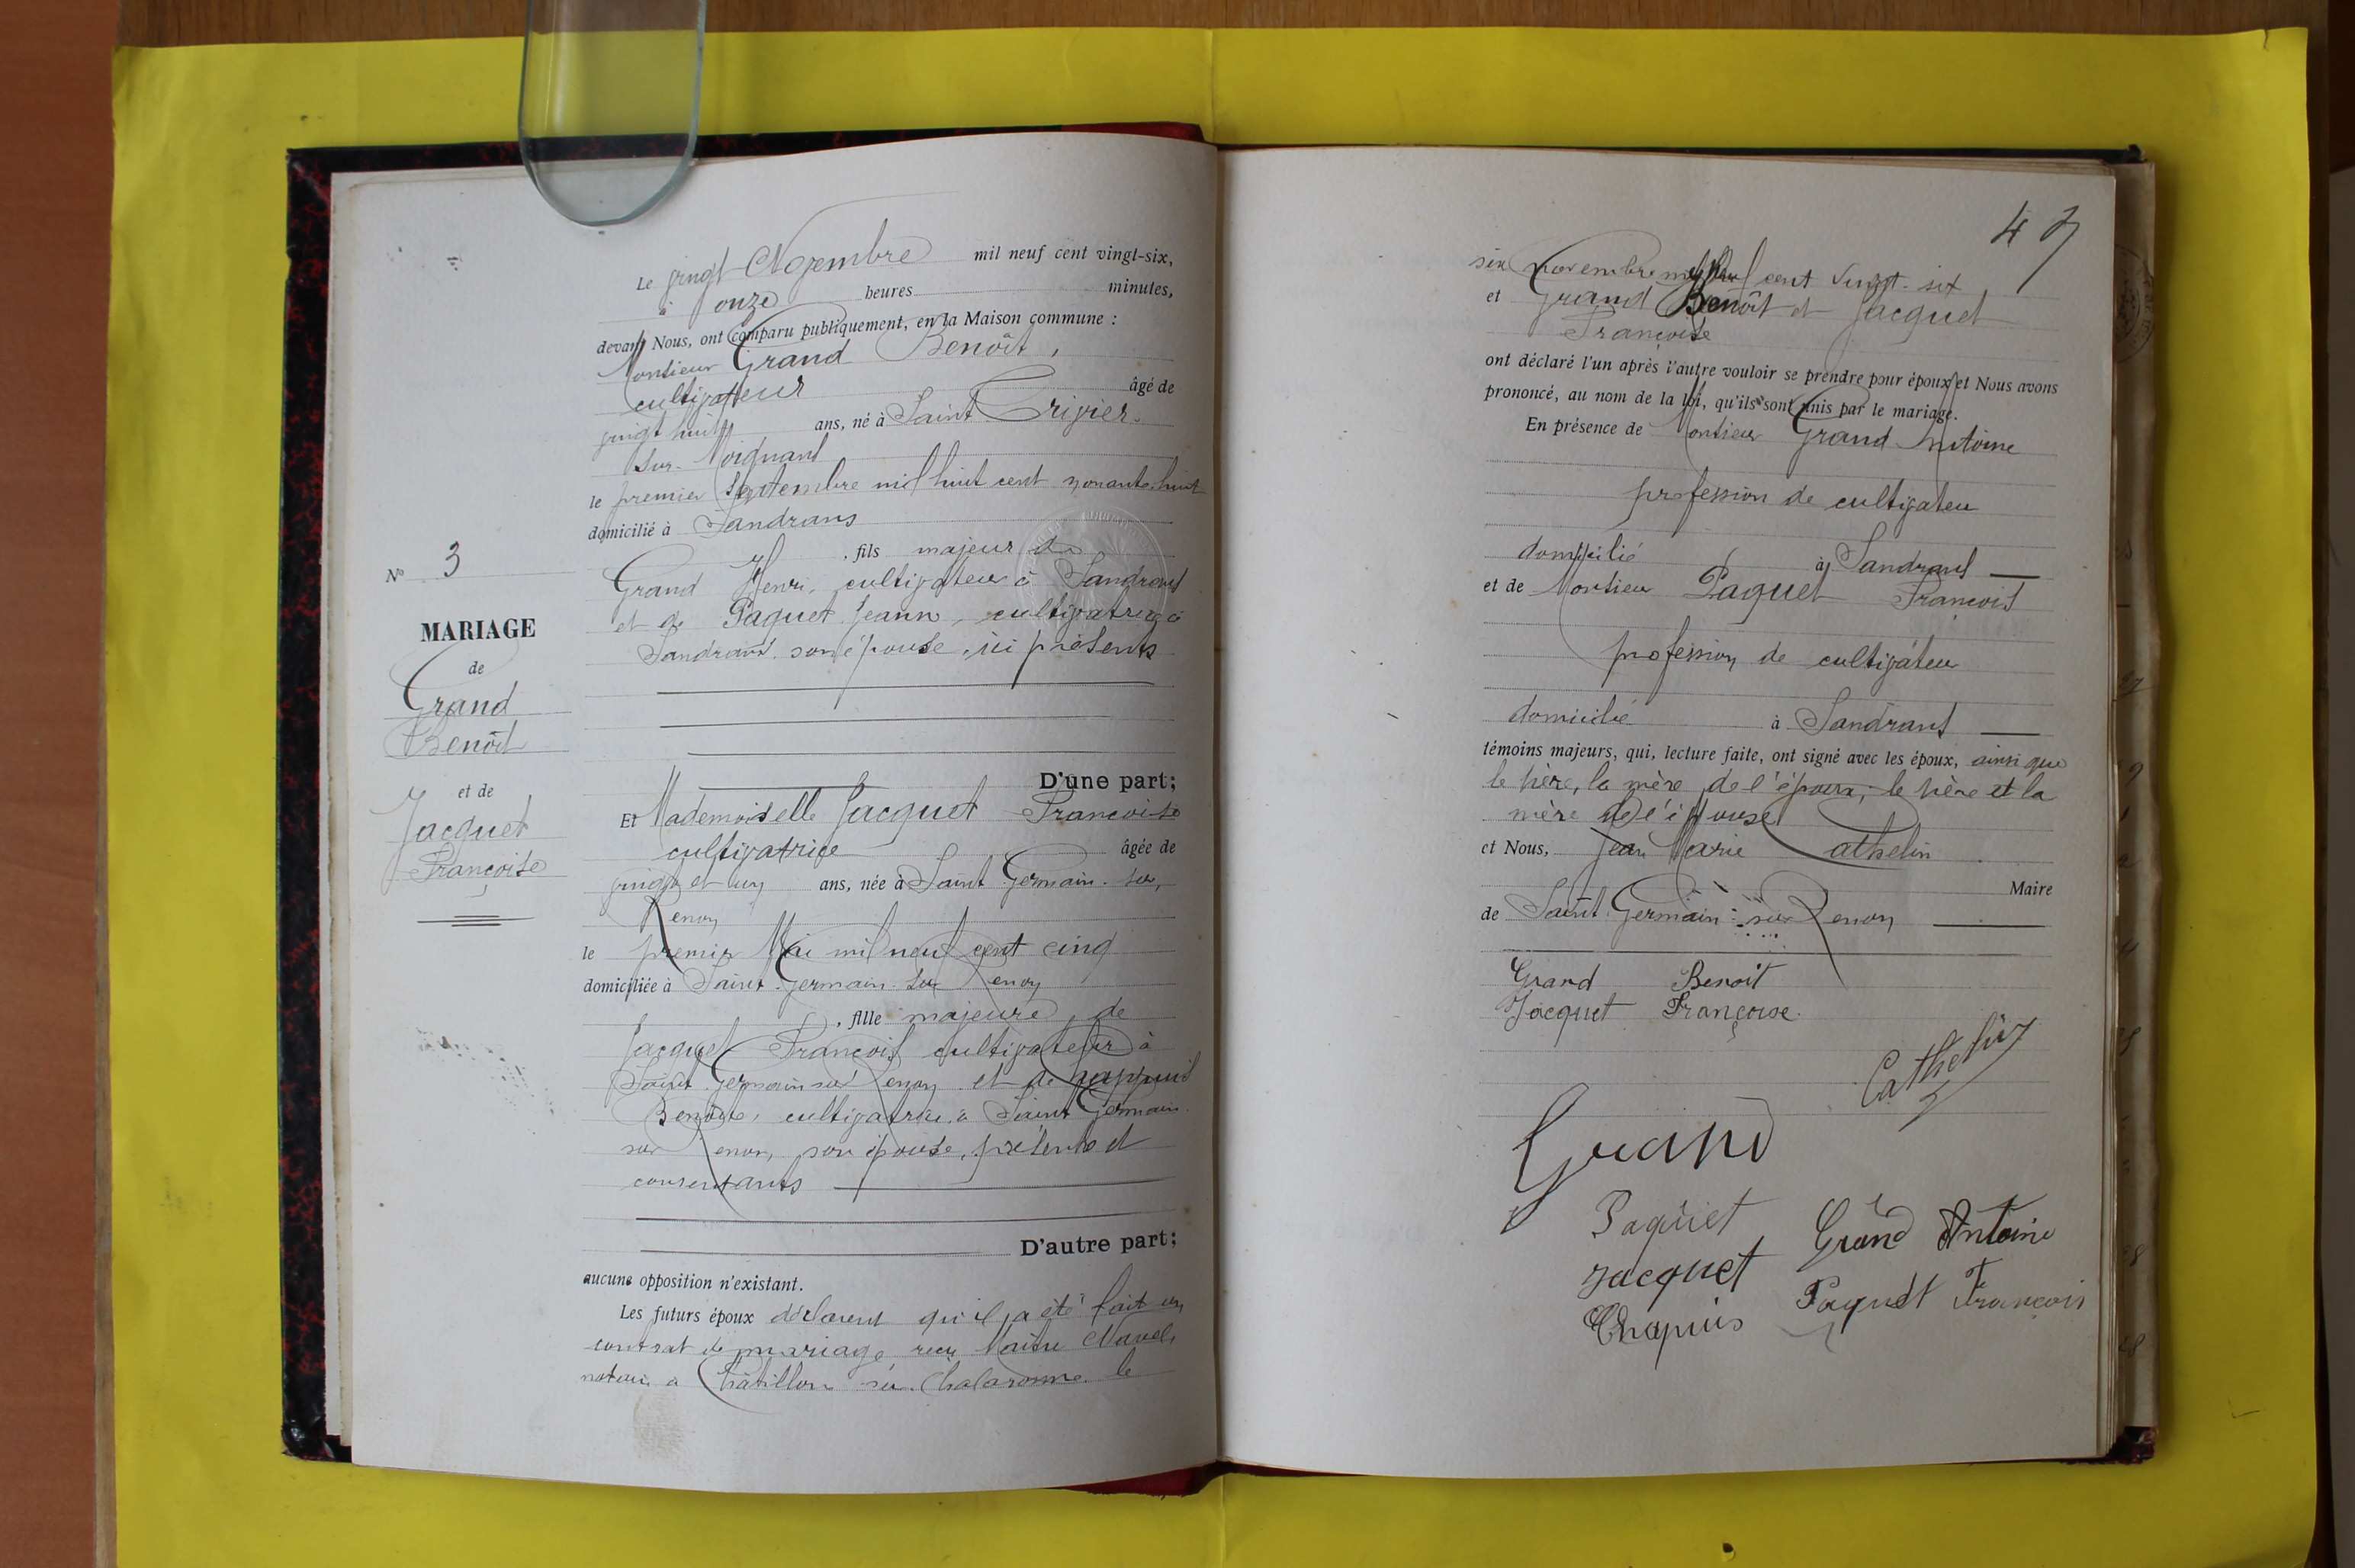 Le vingt Novembre mil neuf cent vingt-six,
à onze heures minutes,
devant Nous, ont comparu publiquement, en la Maison commune :
Monsieur Grand Benoît,
cultivateur âgé de
vingt huit ans, né à Saint Trivier-
sur-Moignans
le premier Septembre mil huit cent nonante-huit
domicilié à Sandrans
, fils majeur de
Grand Henri, cultivateur à Sandrans
et de Paquet Jeanne, cultivatrice à
Sandrans, son épouse, ici présents
D'une part;
N° 3
MARIAGE
de
Grand
Benoît
et de
Jacquet
Françoise
Et Mademoiselle Jacquet Francoise
cultivatrice âgée de
vingt et un ans, née à Saint Germain-sur,
Renon
le premier Mai mil neuf cent cinq
domiciliée à Saint-Germain-sur Renon
, fille majeure, de
Jacquet François cultivateur à
Saint Germain sur Renon et de
Benoîte, cultivatrice à Saint Germain
sur Renon, son épouse, présents et
consentants
D'autre part;
aucune opposition n'existant.
Les futurs époux déclarent qu'il a été fait un
contrat de mariage reçu Maître
notaire à Châtillon sur Chalaronne le
47
six novembre mil neuf cent vingt-six
et Grand Benoît et Jacquet
Françoise
ont déclaré l'un après l'autre vouloir se prendre pour époux et Nous avons
prononcé, au nom de la loi, qu'ils sont unis par le mariage.
En présence de Monsieur Grand Antoine
profession de cultivateur
domicilié à Sandrans
et de Monsieur Paquet François
profession de cultivateur
domicilié à Sandrans
témoins majeurs, qui, lecture faite, ont signé avec les époux, ainsi que
le père, la mère de l'époux, le père et la
mère de l'épouse
et Nous, Jean Marie Cathelin
Maire
de Saint Germain-sur Renon
Grand Benoit
Jacquet Françoise.
Cathelin
Grand
Paquet Grand Antoine
Jacquet Paquet François
Chapuis